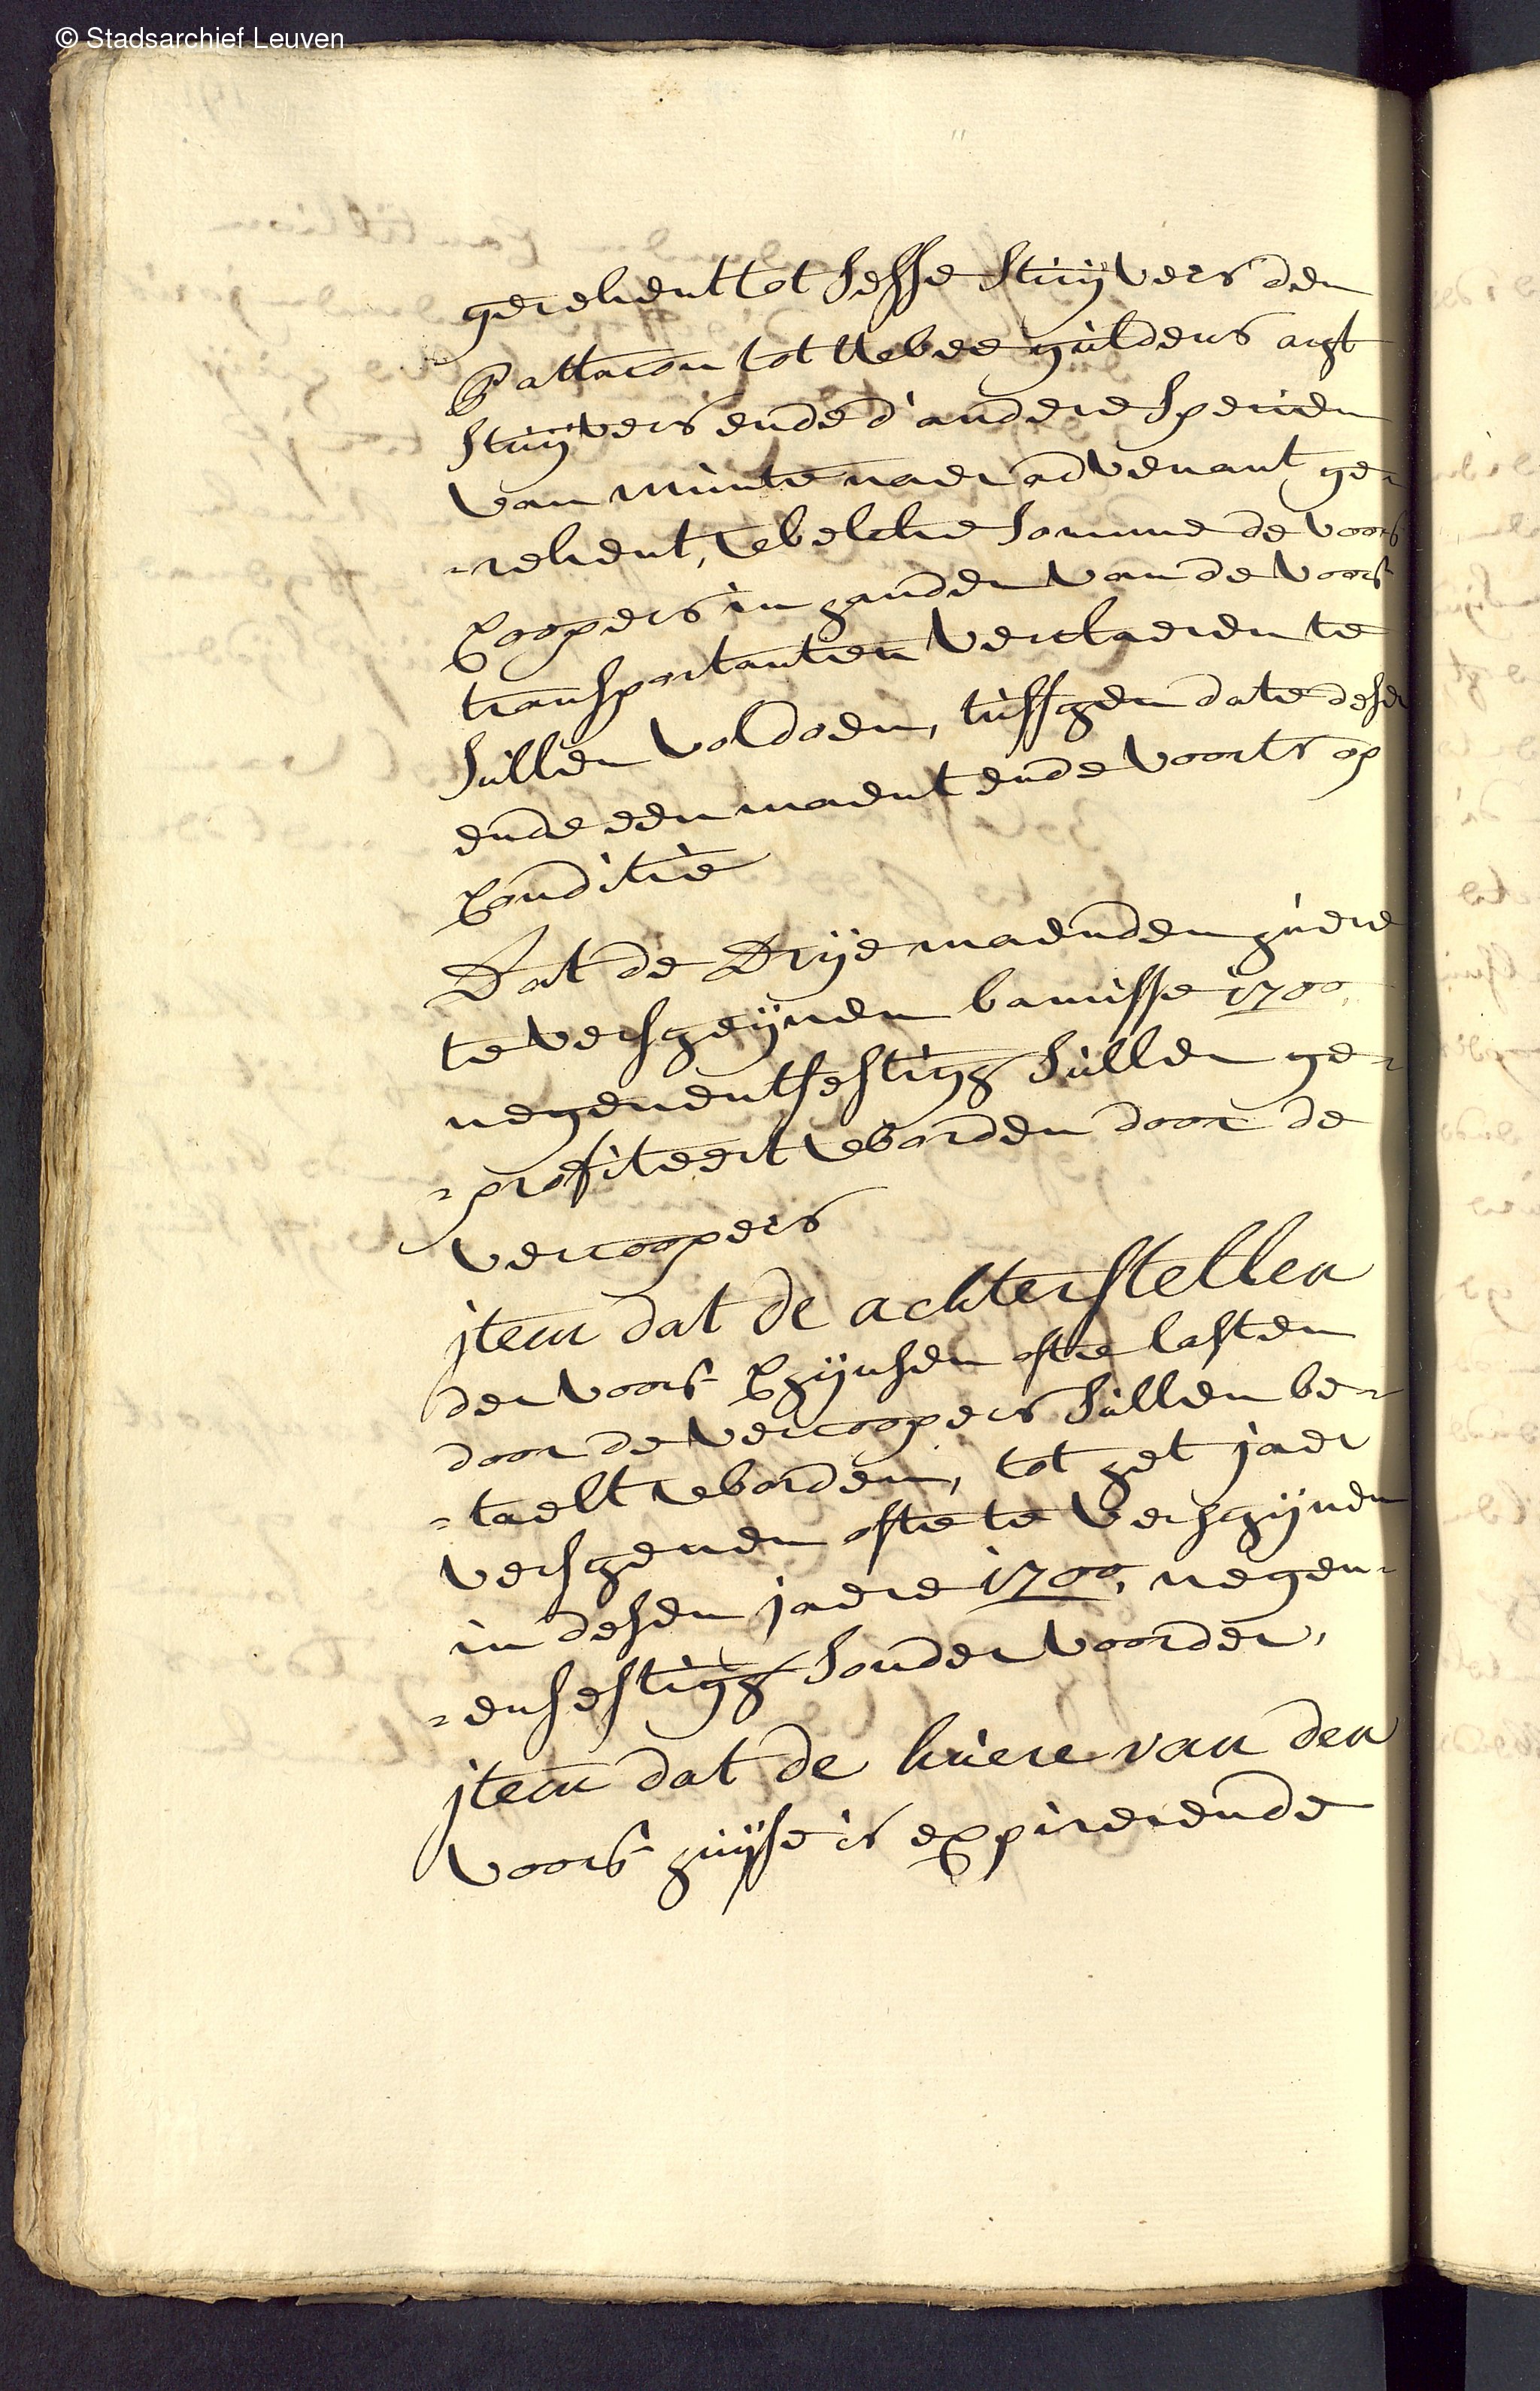 © Stadsarchief Leuven
gerekent tot sesse stuijvers den
Pattacon tot twee guldens acht
stuijvers ende d'andere specien
van munte naer advenant ge-
-rekent, welcke somme de voors
Coopers in handen van de voors
transportanten verclaeren te
sullen voldoen, tusschen date deser
ende een maent ende voorts op
Conditie
Dat de Drije maenden huere
te verscheijnen bamisse 1700,
negenentsestigh sullen ge-
-profiteert worden door de
vercoopers
jtem dat de achterstellen
der voors Chijnsen ofte lasten
door de vercoopers sullen be-
-taelt worden, tot het jaer
verschenen ofte te verschijnen
in desen jaere 1700, negen-
-ensestigh sonder voorder,
jtem dat de huere van den
voors huijse is expirerende